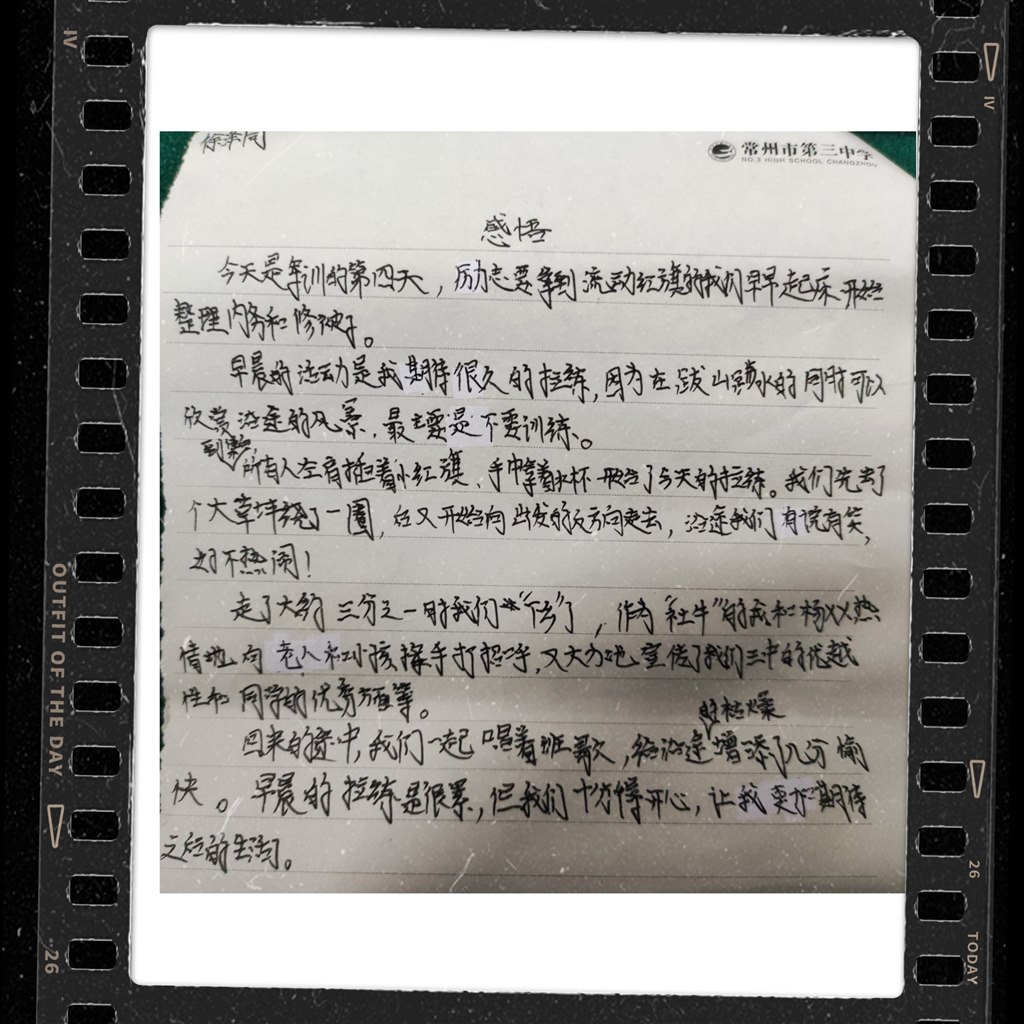 常州市第三中学
NO.3 HIGH SCHOOL CHANGZHOU
感悟
今天是军训的第四天，励志要拿到流动红旗的我们早早起床开始
整理内务和修被子。
早晨的活动是我期待很久的拉练，因为在跋山涉水的同时可以
欣赏沿途的风景，最主要是不要训练。
所有人左肩插着小红旗，手中拿着水杯 了今天的拉练。我们先去了
个大草坪绕了一圈，后又开始向出发的反方向走去，沿途我们有说有笑，
好不热闹！
走了大约三分之一时我们就"下乡"了，作为"社牛"的我和杨XX热
情地向老人和小孩挥手打招呼，又大力地宣传了我们三中的优越
性和同学的优秀方面等。
的枯燥
回来的途中，我们一起唱着班歌，给沿途增添了几分愉
快。早晨的拉练是很累，但我们十分得开心，让我更加期待
之后的生活。
OUTFIT OF THE DAY
IV
IV
26
26
TODAY